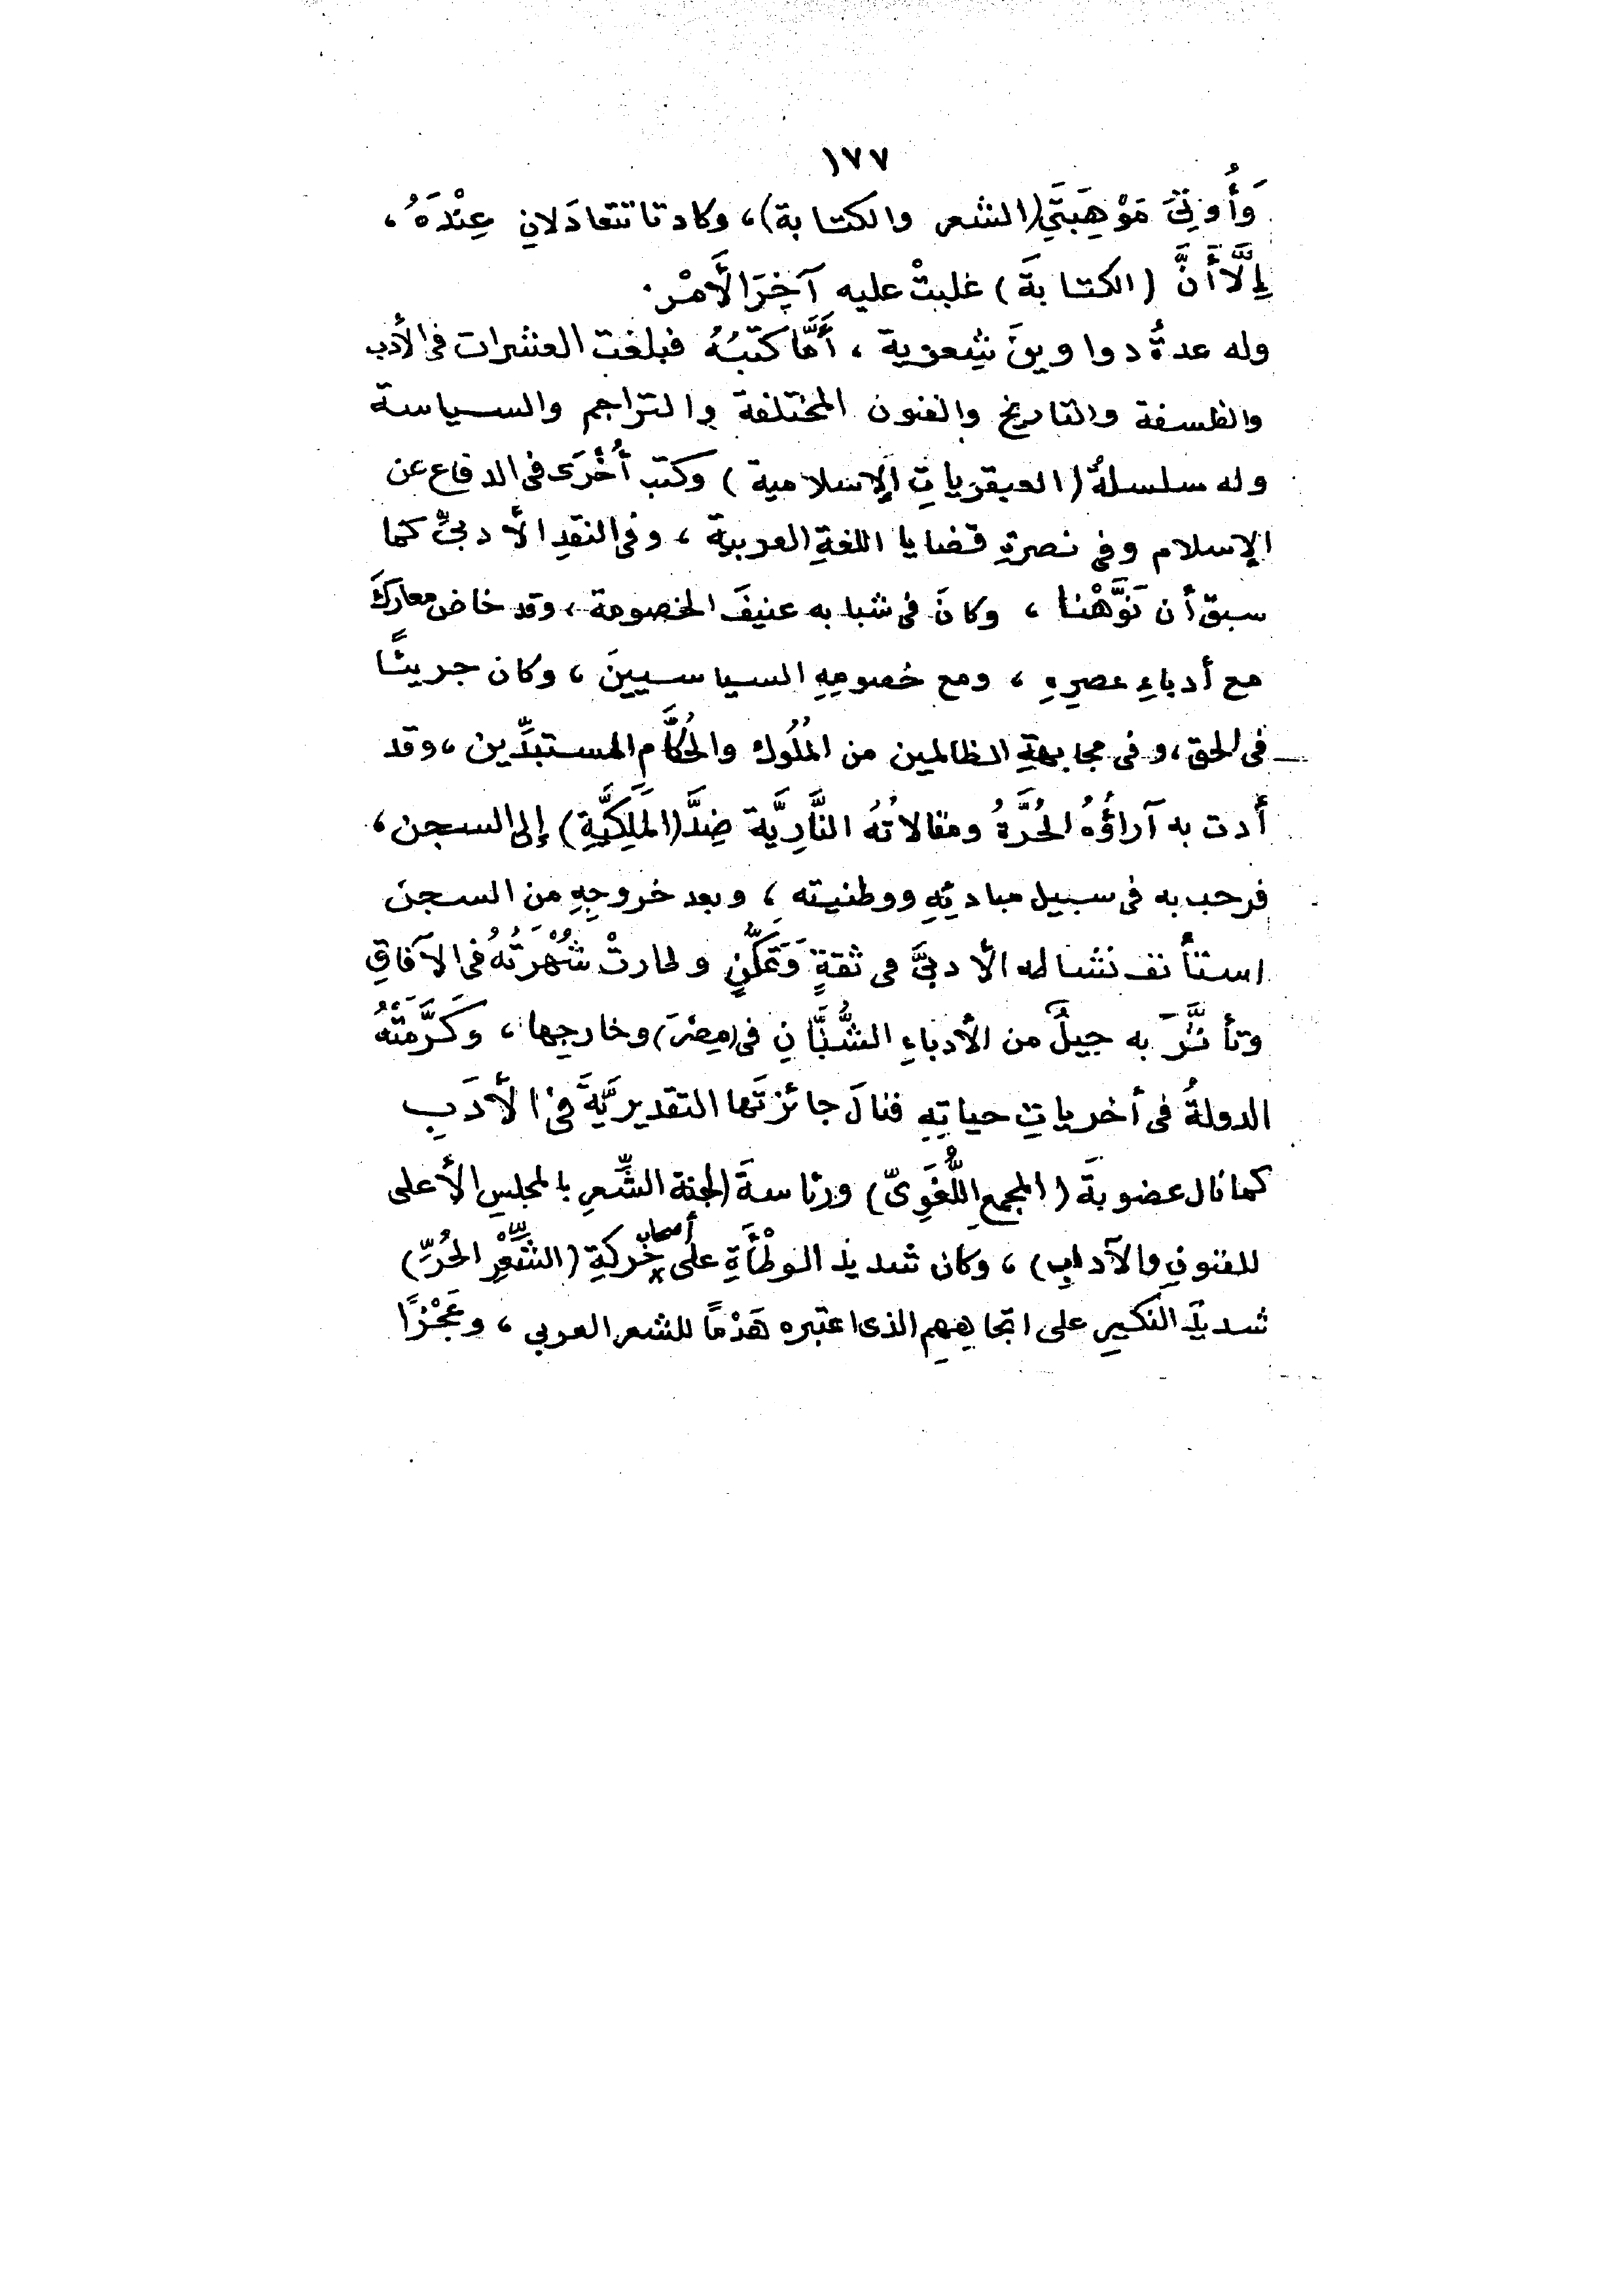 ١٧٧
وَأُوتِيَ مَوْهِبَتَي (الشعر والكتابة)، وكادتا تتعادَلانِ عِنْدَهُ،
إِلَّا أَنَّ (الكتابةَ) غلبتْ عليه آخِرَ الأَمْرِ.
وله عدةُ دواوينَ شِعرية، أَمَّا كتبُهُ فبلغت العشرات فى الأدب
والفلسفة والتاريخ والفنون المختلفة والتراجم والسياسة
وله سلسلةُ (العبقرياتِ الإِسلامية) وكتب أُخْرَى فى الدفاع عن
الإِسلام وفى نصرةِ قضايا اللغةِ العربيةِ، وفى النقدِ الأَدبىِّ كما
سبق أن نَوَّهْنا، وكانَ فى شبابه عنيفَ الخصومة، وقد خاض معاركَ
مع أدباءِ عصرِهِ، ومع خصومِهِ السياسيينَ، وكان جريئًا
فى الحق، وفى مجابهةِ الظالمين من المُلُوك والحُكَّامِ المستبدِّين، وقد
أدت به آراؤُهُ الحُرَّةُ ومقالاتُهُ النَّارِيَّة ضِدَّ (المَلَكِيَّةِ) إلى السجن،
فرحب به فى سبيل مبادئِهِ ووطنيته، وبعد خروجِهِ من السجن
استأنف نشاطه الأدبىَّ فى ثقةٍ وَتَمَكُّنٍ وطارتْ شُهْرَتُهُ فى الآفاقِ
وتأثَّرَ به جيلٌ من الأدباءِ الشُّبَّانِ فى (مِصْرَ) وخارجِها، وَكَرَّمَتْهُ
الدولةُ فى أخرياتِ حياتِهِ فنالَ جائزتَها التقديريَّةَ فى الأَدَبِ
كما نال عضويةَ (المجمعِ اللُّغَوِىِّ) ورئاسةَ (لجنة الشِّعرِ بالمجلسِ الأعلى
للفنونِ والآدابِ)، وكان شديد الوطْأَةِ على أصحاب حركةِ (الشِّعْرِ الحُرِّ)
شديدَ النكيرِ على اتجاهِهِم الذى اعتبره هَدْمًا للشعر العربي، وعَجْزًا